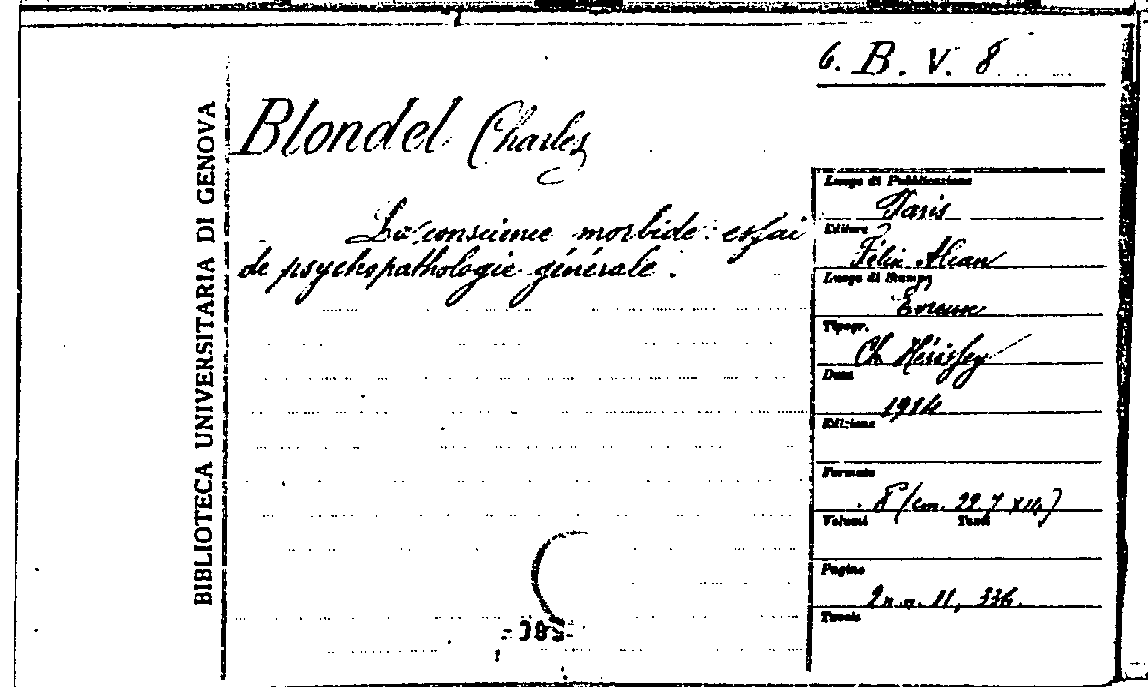 6. B. V. 8
BIBLIOTECA UNIVERSITARIA DI GENOVA
Blondel Charles
La conscience morbide: essai
de psychopathologie générale.
Luogo di Pubblicazione
Paris
Editore
Félix Alcan
Luogo di Stampa
Evreux
Tipogr.
Ch Hérissey
Data
1914
Edizione
Formato
8° (cm. 22.7 x 14)
Volumi Tomi
Pagine
2 n. n. II, 336.
Tavole